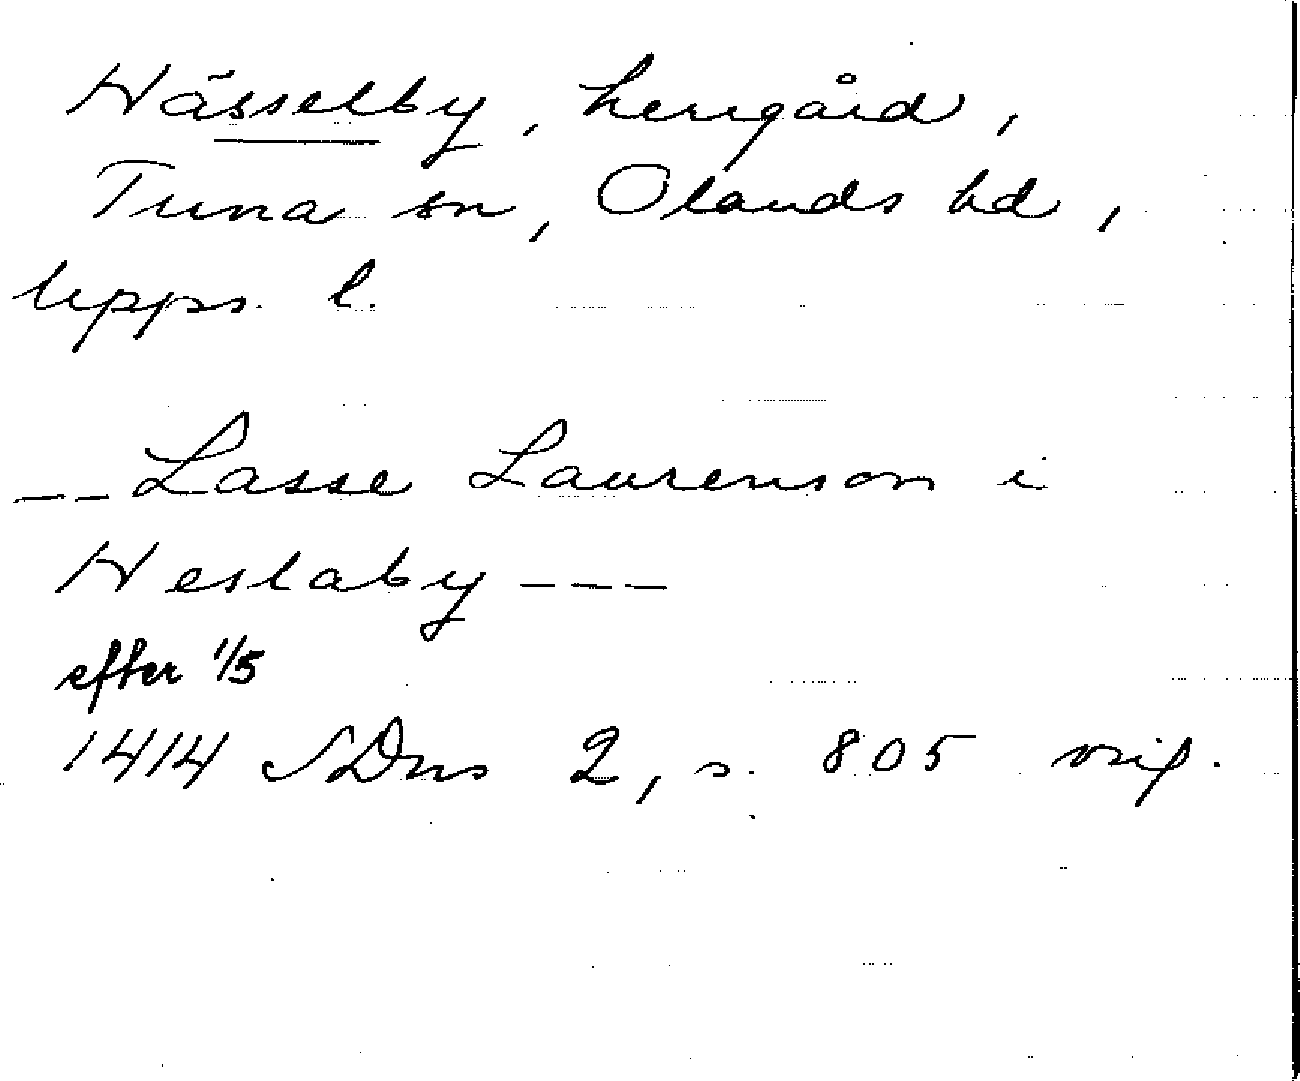 Hässelby, herrgård,
Tuna sn, Olands hd,
Upps. l.
-- Lasse Laurenson i
Heslaby ---
efter 1/5
1414 SDns 2, s. 805 orig.